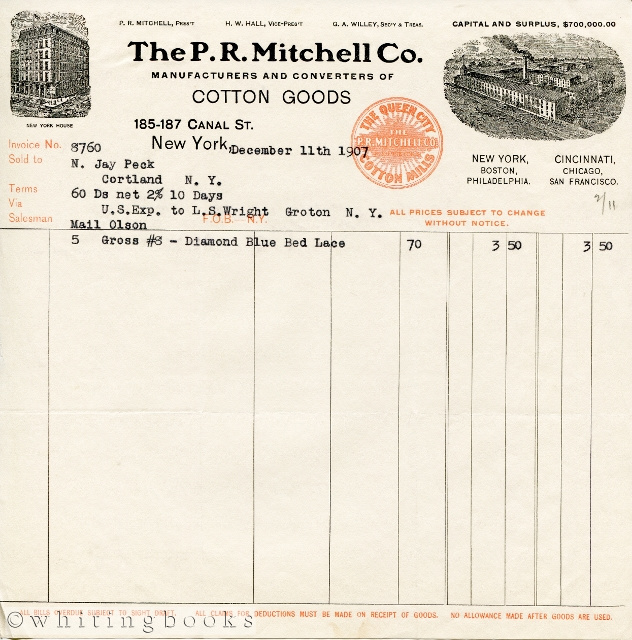 P. R. MITCHELL, PRES'T H. W. HALL, VICE-PRES'T G. A. WILLEY, SEC'Y & TREAS. CAPITAL AND SURPLUS, $700,000.00
The P. R. Mitchell Co.
MANUFACTURERS AND CONVERTERS OF
COTTON GOODS
NEW YORK HOUSE
185-187 CANAL ST.
THE QUEEN CITY
THE
P.R. MITCHELL CO.
COTTON MILLS
Invoice No. 8760 New York, December 11th 1907
NEW YORK, CINCINNATI,
BOSTON, CHICAGO,
PHILADELPHIA. SAN FRANCISCO.
Sold to N. Jay Peck
Cortland N. Y.
Terms 60 Ds net 2% 10 Days
2/11
Via U.S.Exp. to L.S.Wright Groton N. Y.
F.O.B.—N.Y.
ALL PRICES SUBJECT TO CHANGE
WITHOUT NOTICE.
Salesman Mail Olson
5 Gross #8 - Diamond Blue Bed Lace 70 3 50 3 50
ALL BILLS OVERDUE SUBJECT TO SIGHT DRAFT. ALL CLAIMS FOR DEDUCTIONS MUST BE MADE ON RECEIPT OF GOODS. NO ALLOWANCE MADE AFTER GOODS ARE USED.
©whitingbooks